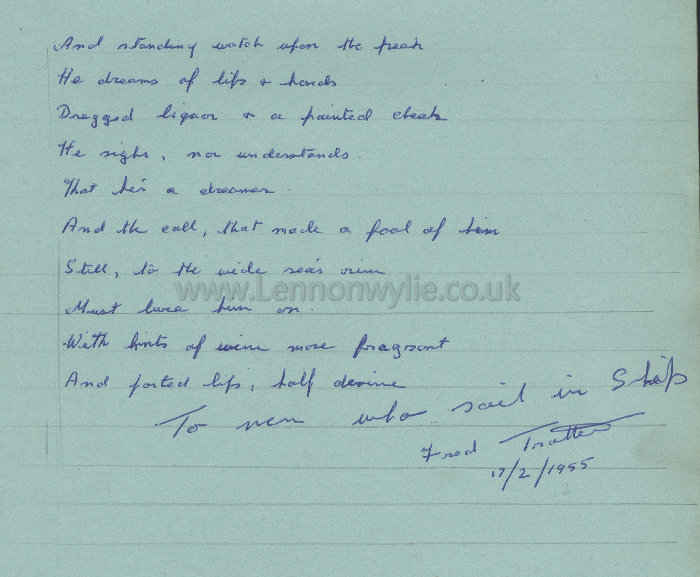 And standing watch upon the peak
He dreams of lips & hands
Drugged liquor & a painted cheek
He sighs, nor understands
That he's a dreamer
And the call, that made a fool of him
Still, to the wide sea's rim
www.Lennonwylie.co.uk
Must lure him on.
With hints of wine more fragrant
And parted lips, half divine
To men who sail in Ships
Fred Trotter
17/2/1955